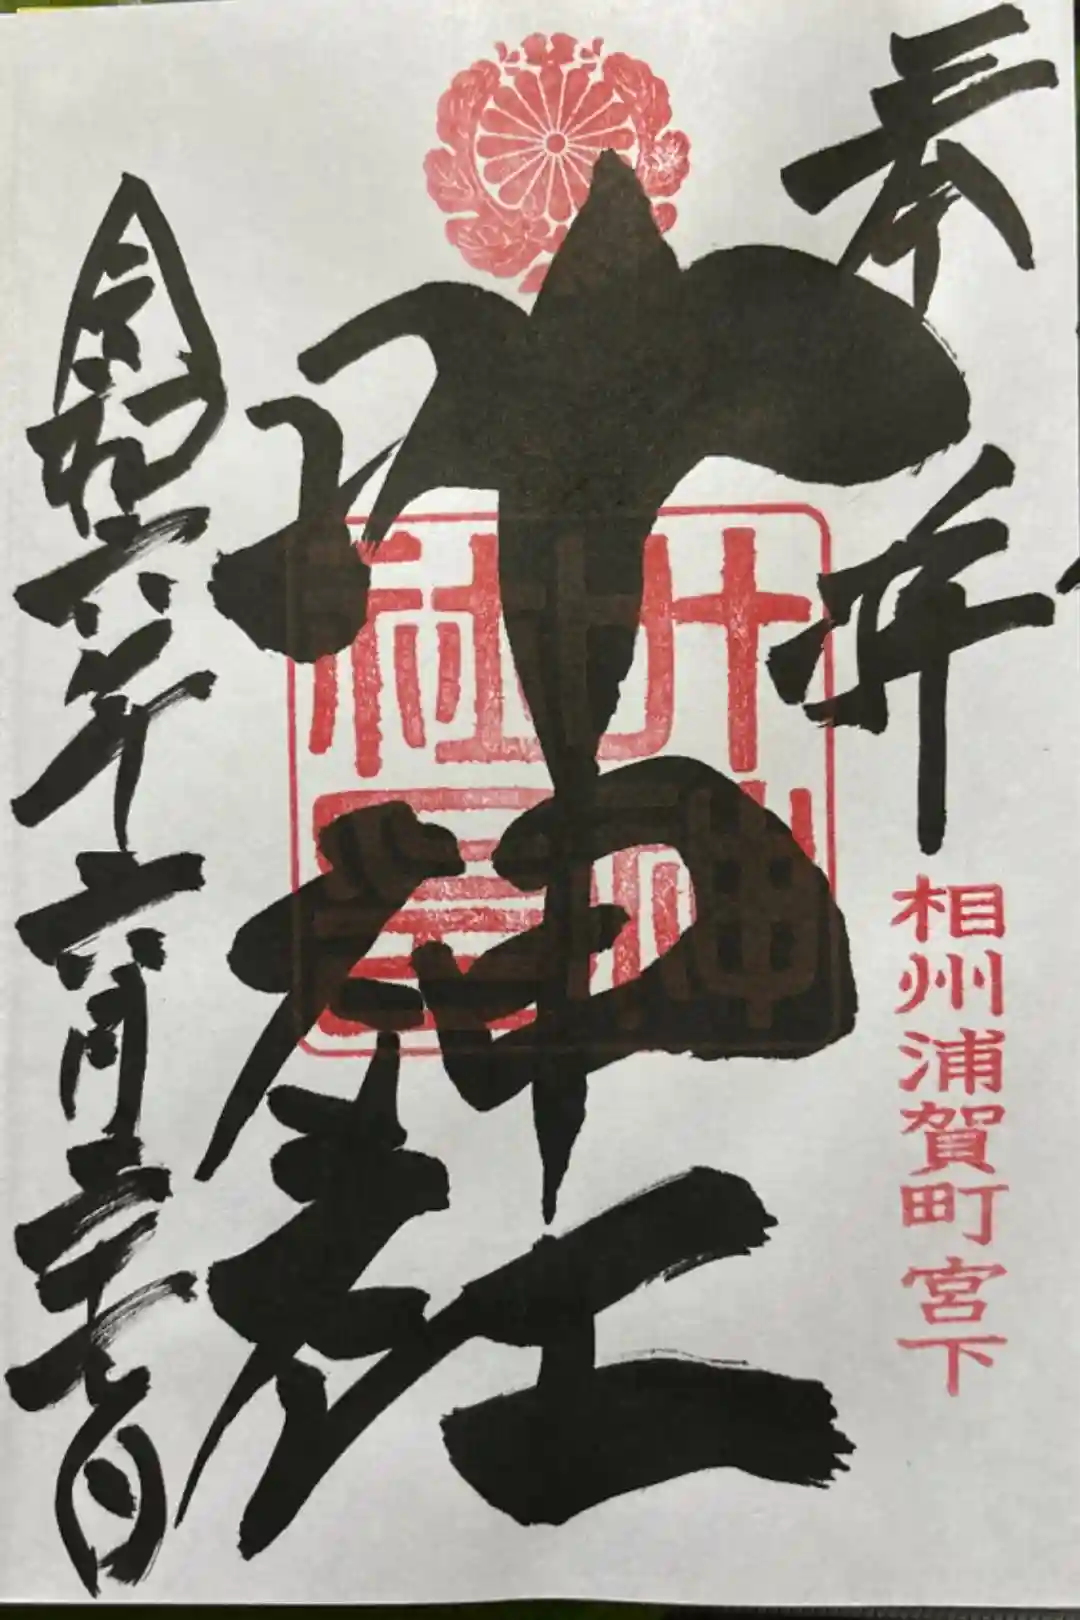 奉拝
相州浦賀町宮下
叶神社
令和六年六月二十七日